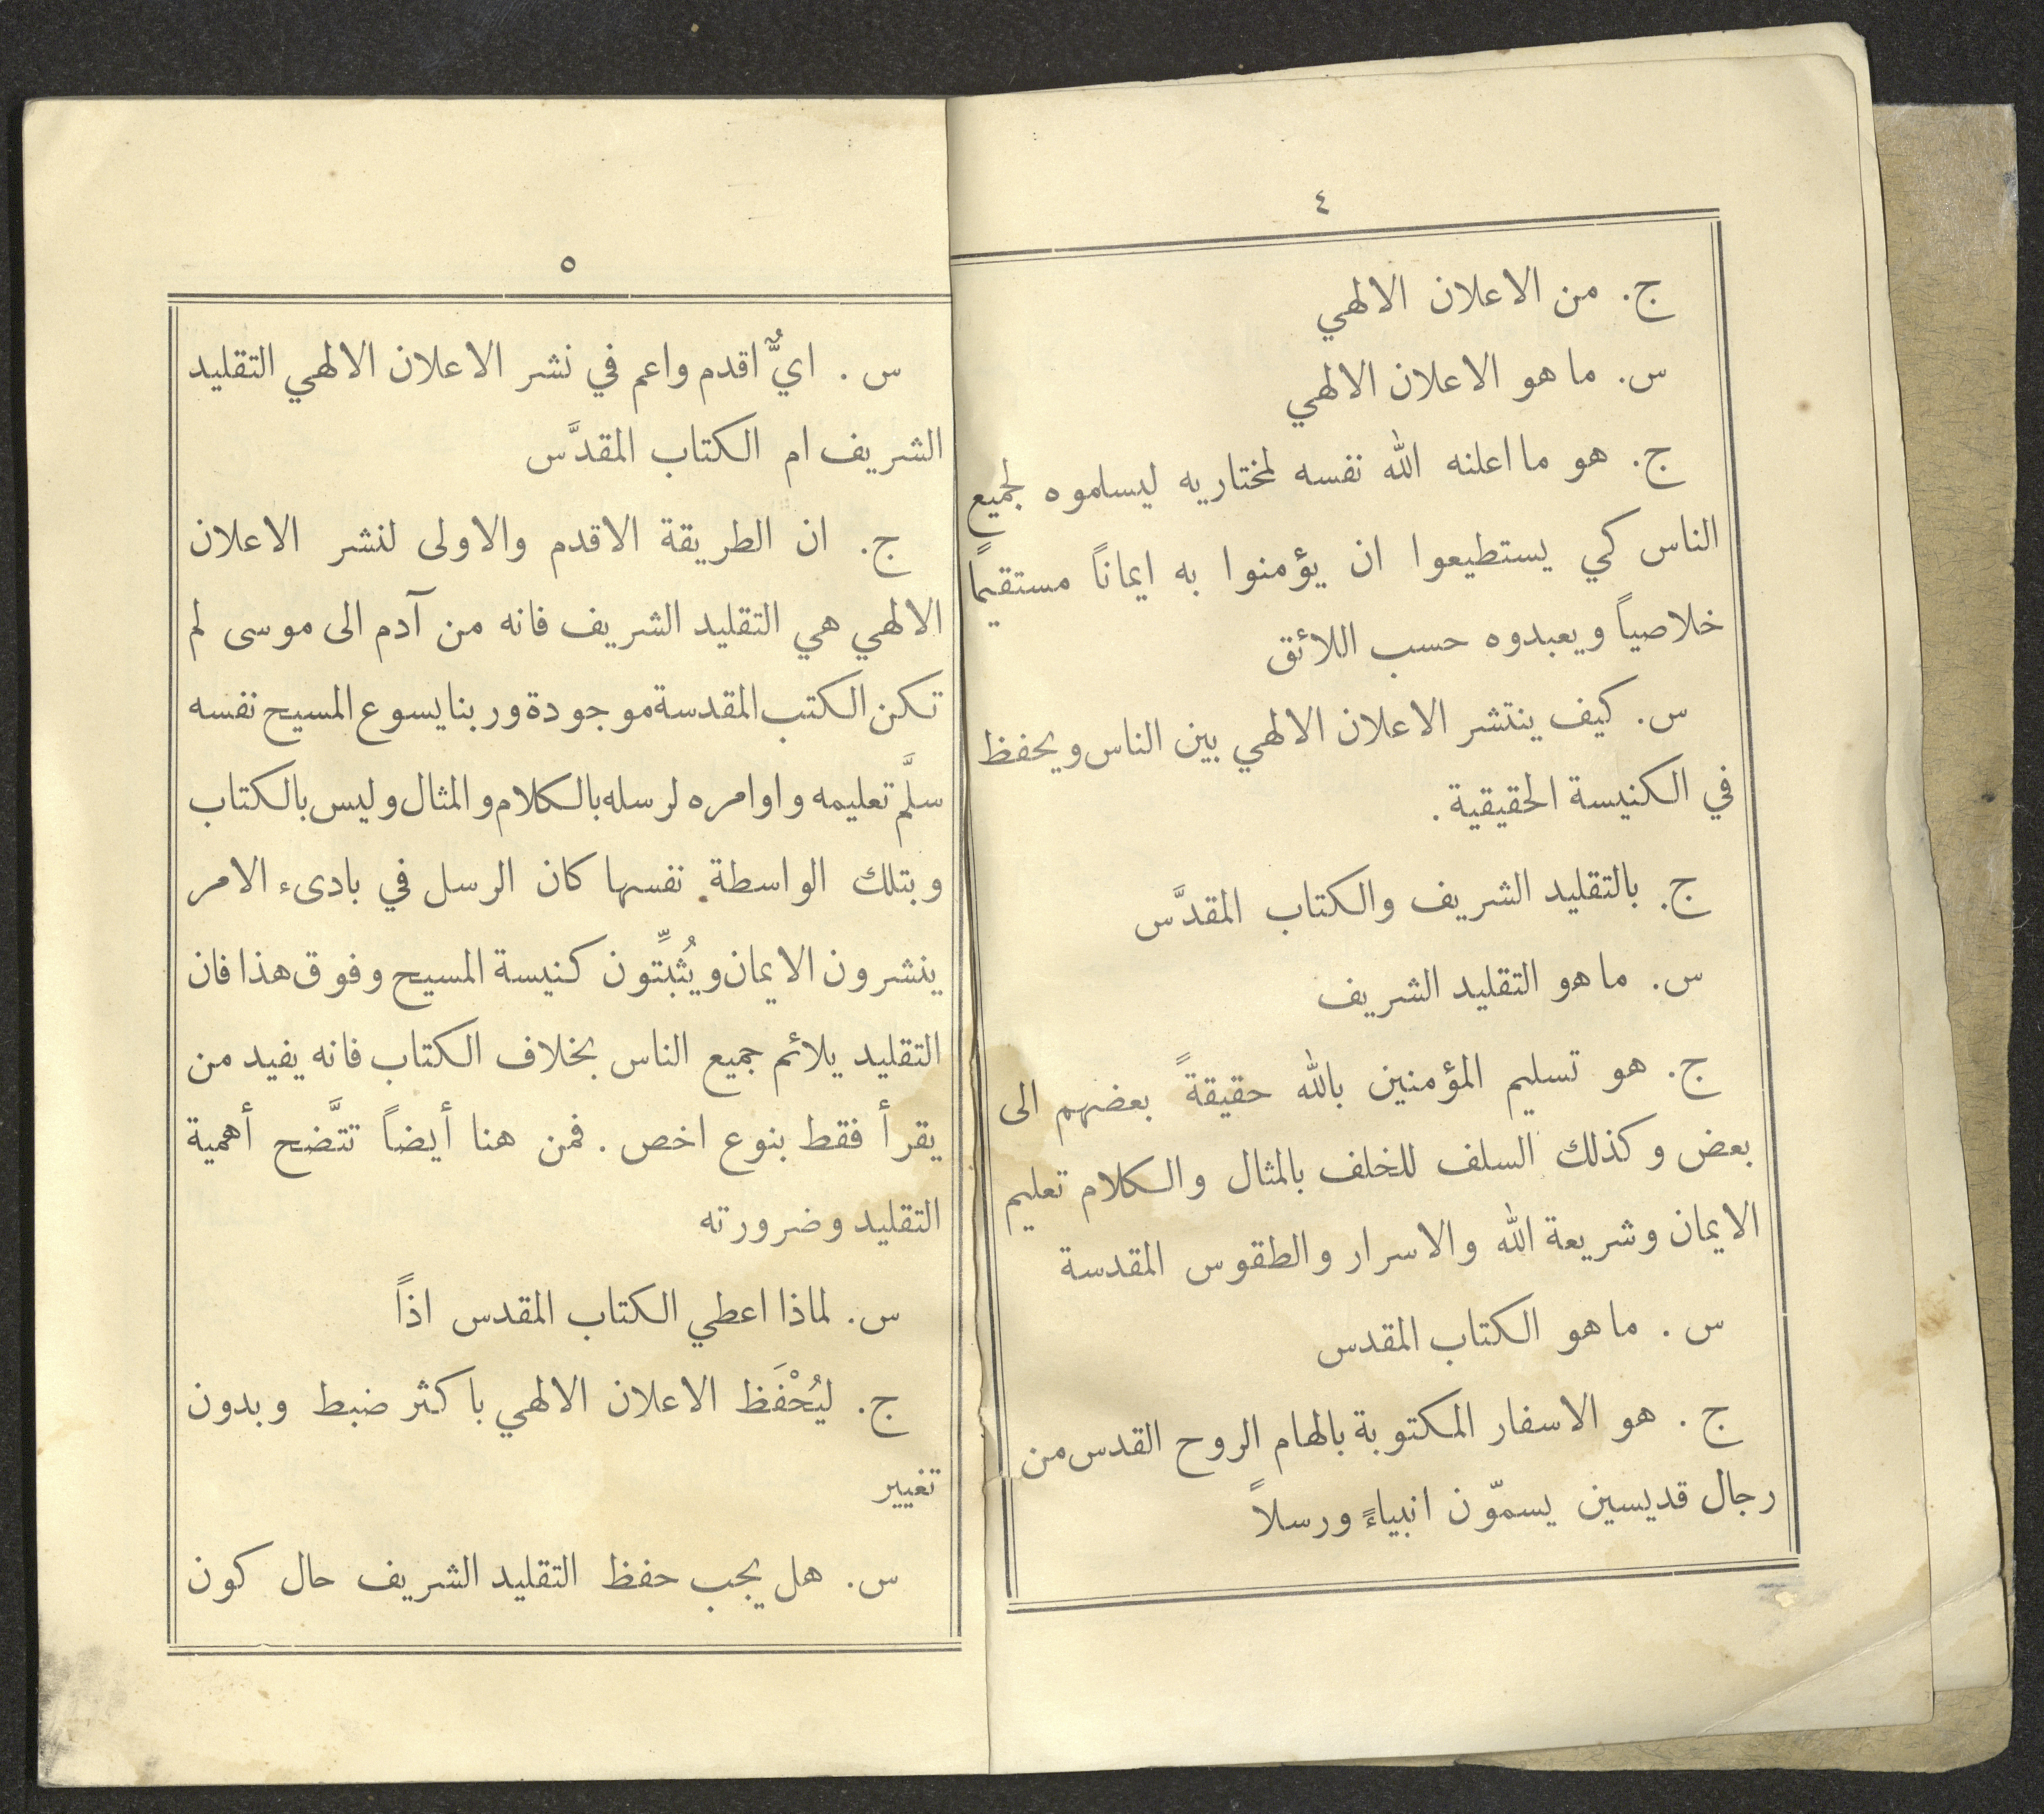 ٤
ج. من الاعلان الالهي
س. ما هو الاعلان الالهي
ج. هو ما اعلنه الله نفسه لمختاريه ليساموه لجميع
الناس كي يستطيعوا ان يؤمنوا به ايماناً مستقيماً
خلاصياً ويعبدوه حسب اللائق
س. كيف ينتشر الاعلان الالهي بين الناس ويحفظ
في الكنيسة الحقيقية.
ج. بالتقليد الشريف والكتاب المقدَّس
س. ما هو التقليد الشريف
ج. هو تسليم المؤمنين بالله حقيقةً بعضهم الى
بعض وكذلك السلف للخلف بالمثال والكلام تعليم
الايمان وشريعة الله والاسرار والطقوس المقدسة
س. ما هو الكتاب المقدس
ج. هو الاسفار المكتوبة بالهام الروح القدس من
رجال قديسين يسمّون انبياءً ورسلاً
٥
س. ايٌّ اقدم واعم في نشر الاعلان الالهي التقليد
الشريف ام الكتاب المقدَّس
ج. ان الطريقة الاقدم والاولى لنشر الاعلان
الالهي هي التقليد الشريف فانه من آدم الى موسى لم
تكن الكتب المقدسة موجودة وربنا يسوع المسيح نفسه
سلَّم تعليمه واوامره لرسله بالكلام والمثال وليس بالكتاب
وبتلك الواسطة نفسها كان الرسل في بادىء الامر
ينشرون الايمان ويُثبِّتون كنيسة المسيح وفوق هذا فان
التقليد يلائم جميع الناس بخلاف الكتاب فانه يفيد من
يقرأ فقط بنوع اخص. فمن هنا أيضاً تتَّضح أهمية
التقليد وضرورته
س. لماذا اعطي الكتاب المقدس اذاً
ج. ليُحْفَظ الاعلان الالهي باكثر ضبط وبدون
تغيير
س. هل يجب حفظ التقليد الشريف حال كون